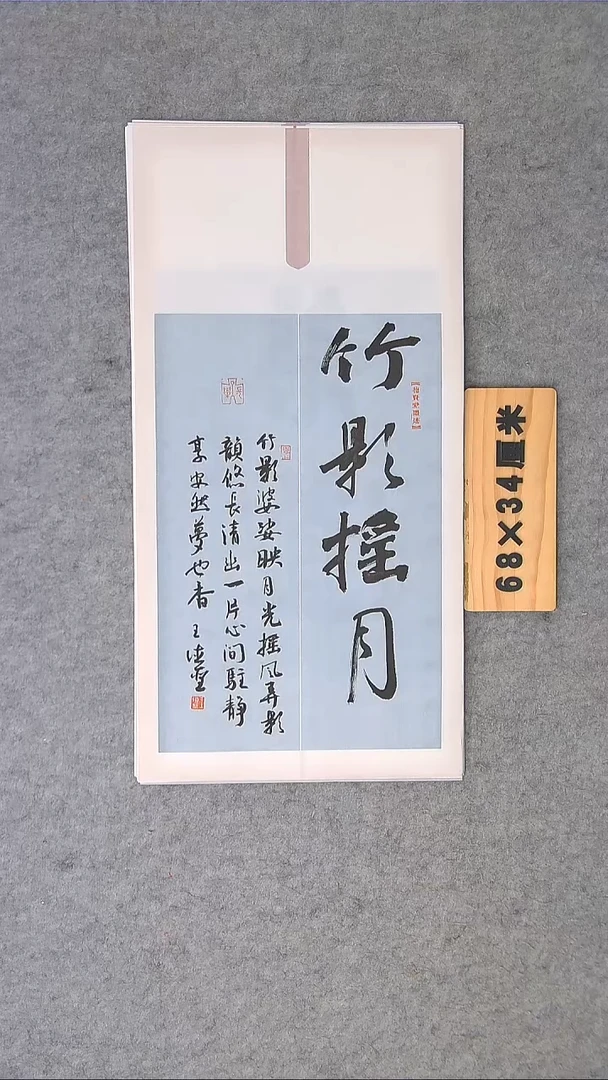 竹影摇月
竹影婆娑映月光摇风弄影
韻悠长清出一片心间駐静
享安然夢也香
68×34厘米